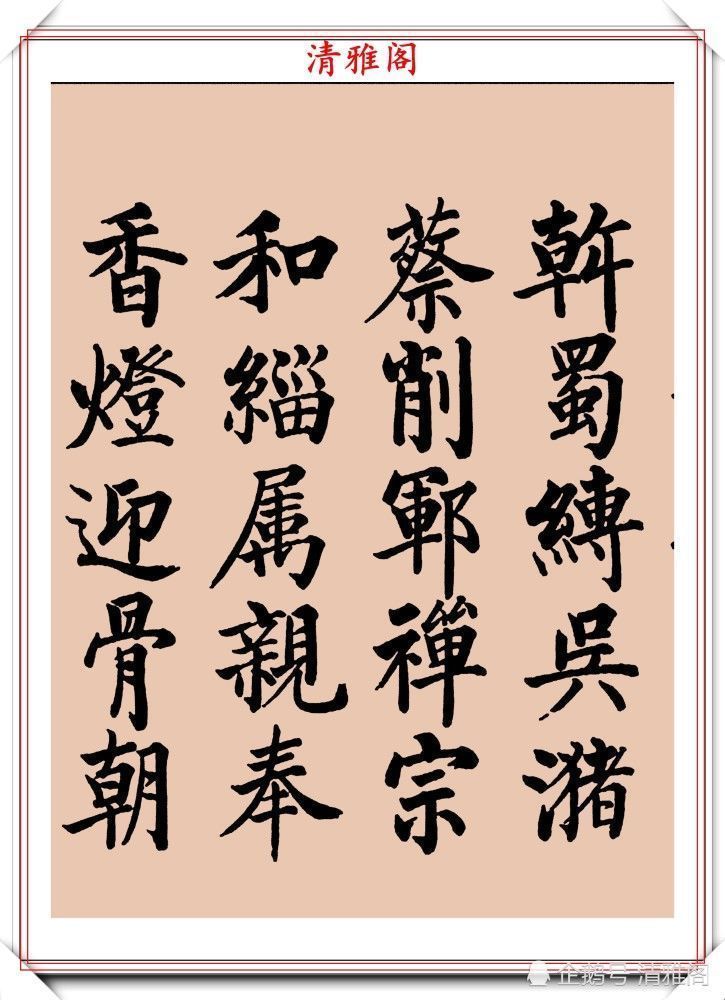 清雅阁
斡蜀縛吳瀦
蔡削鄆禪宗
和緇属親奉
香燈迎骨朝
企鹅号 清雅阁